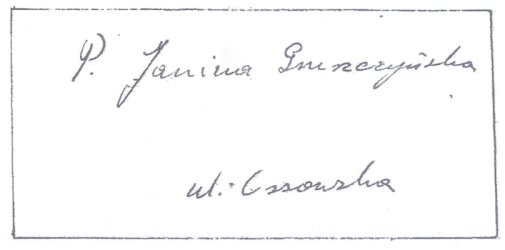 P. Janina Gruszczyńska
ul. Ossowska